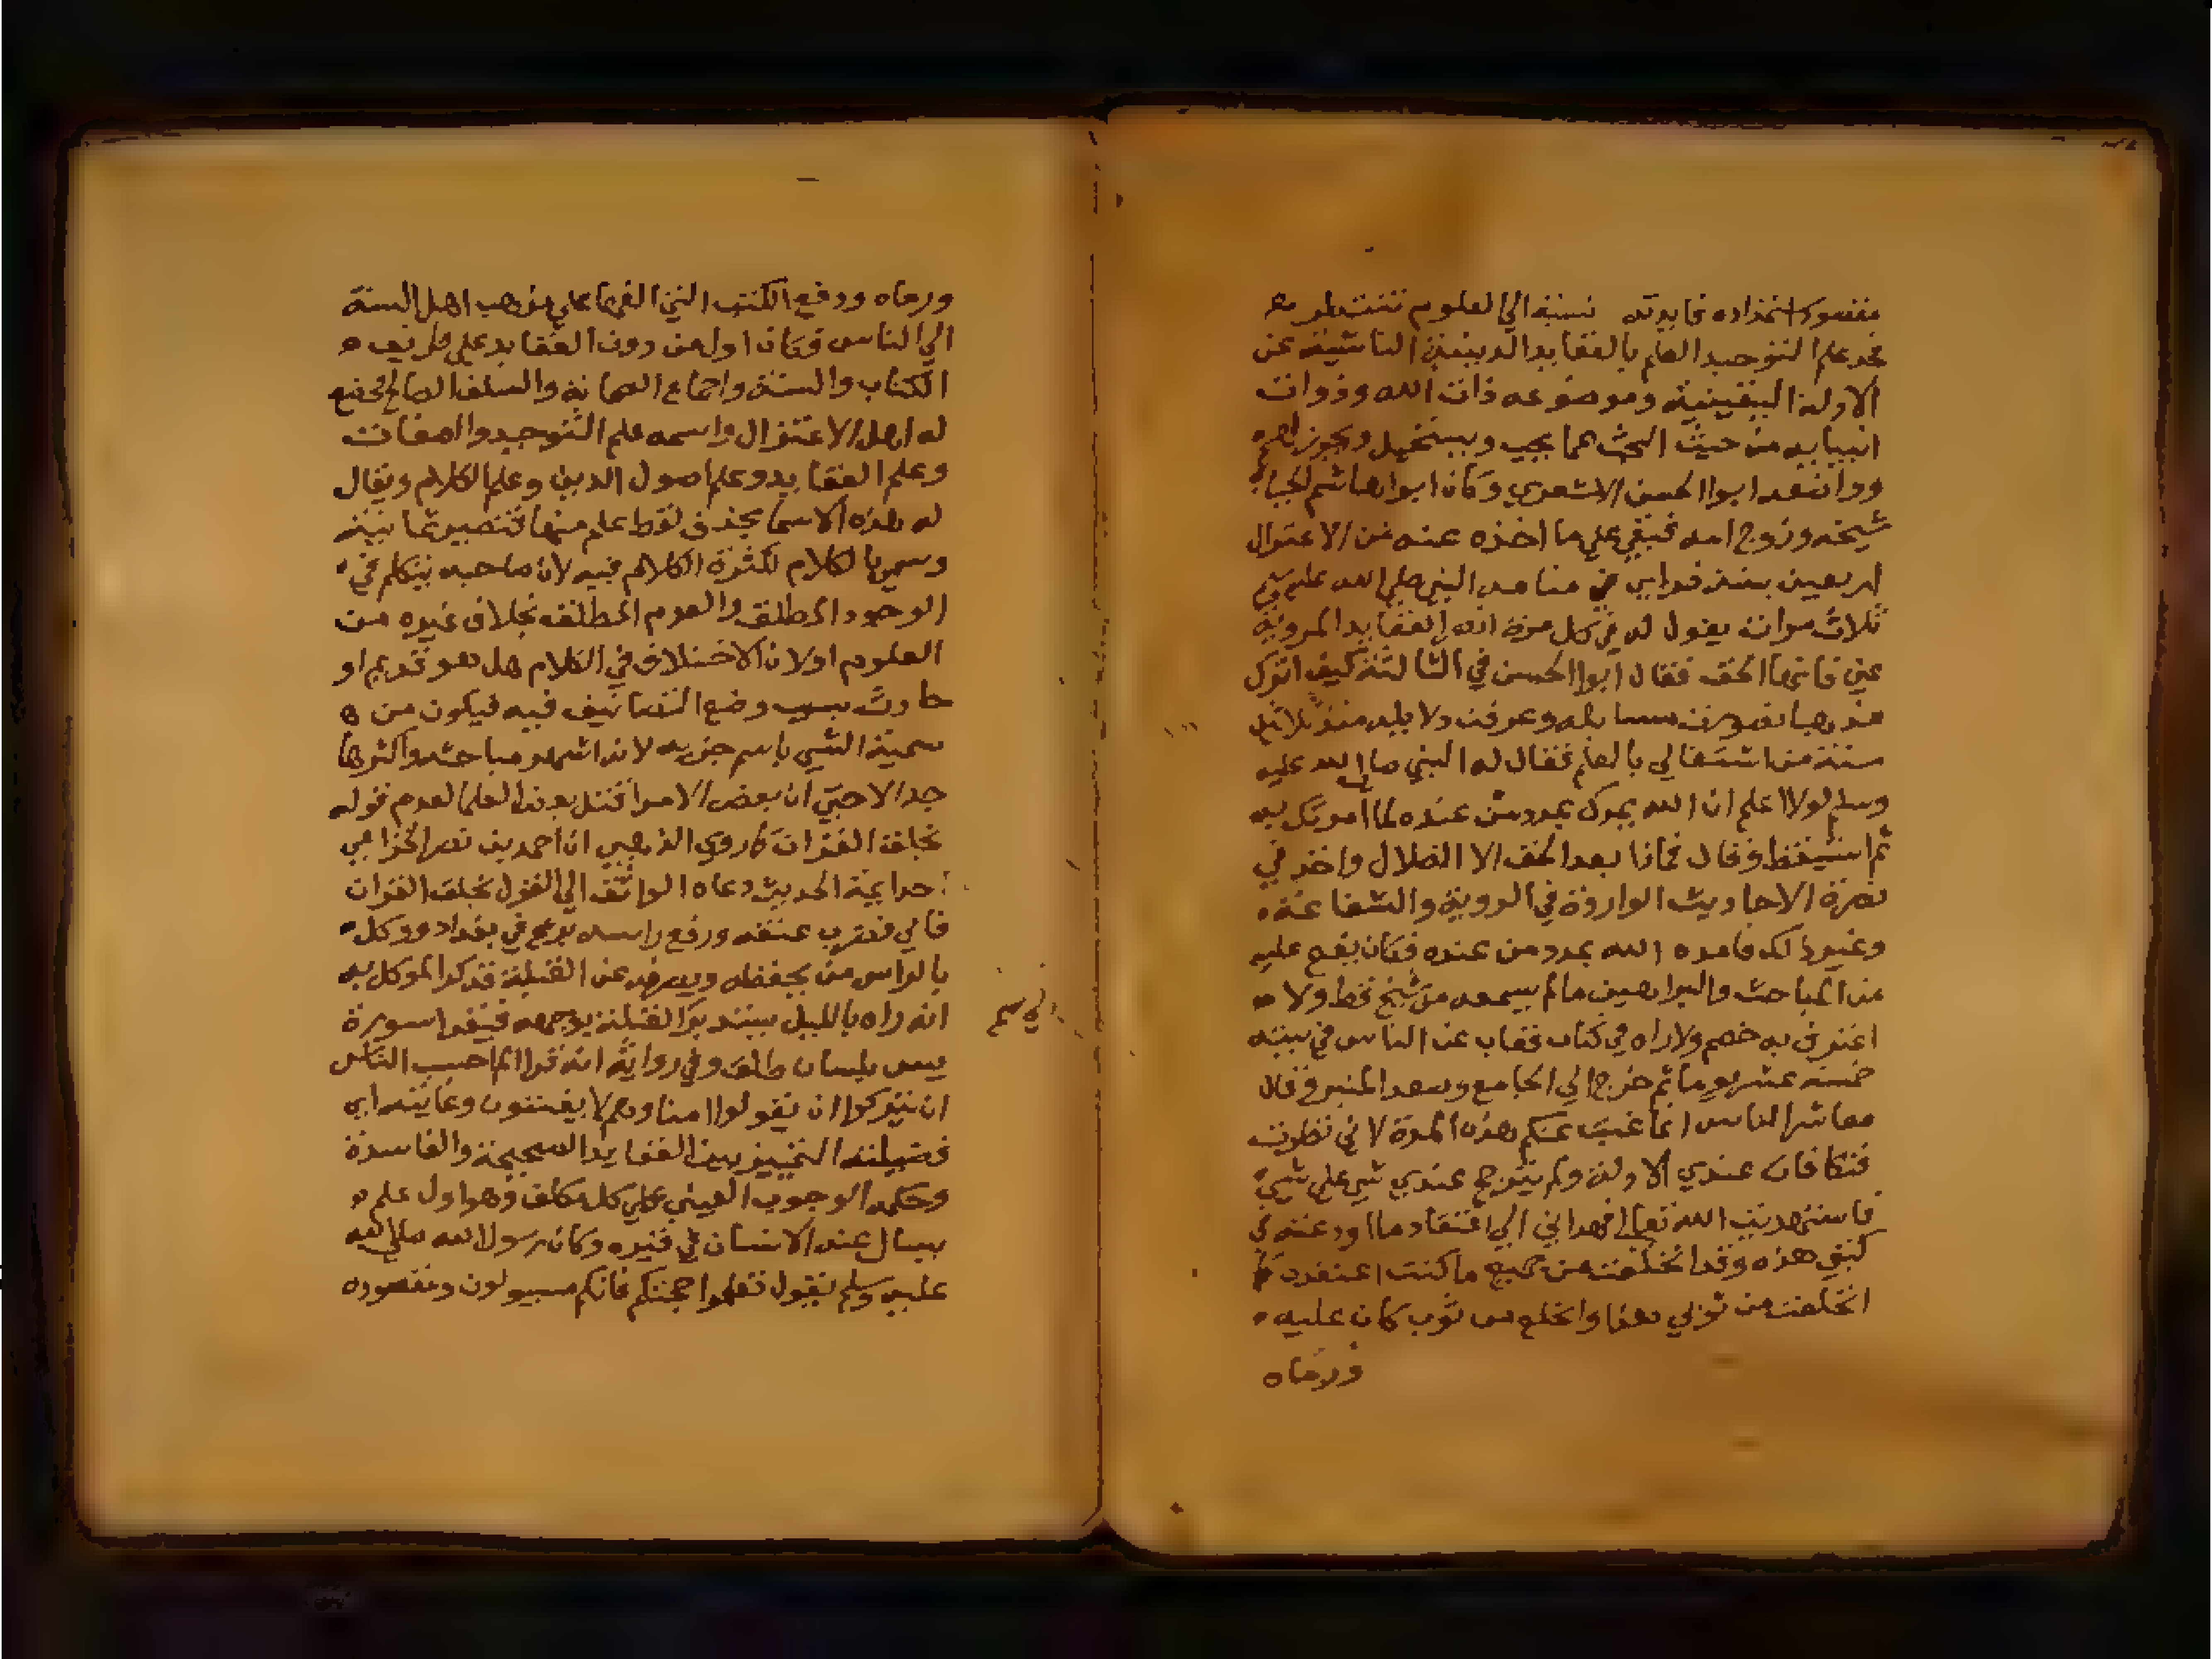 فحد علم التوحيد العلم بالعقايد الدينية الناشية عن
الادلة اليقينية وموضوعه ذات الله وذوات
انبيايه من حيث البحث عما يجب ويستحيل ويجوز لهم
وواضعه ابوا الحسن الاشعري وكان ابوا هاشم الجباي
شيخه وزوج امه فبقي علي ما اخذه عنه من الاعتزال
اربعين سنة فراي في منامه النبي صلي الله عليه وسلم
ثلاث مرات يقول له في كل مرة انصر العقايد المروية
عني فانها الحق فقال ابوا الحسن في الثالثة كيف اترك
مذهبا تصورت مسايله وعرفت دلايله منذ ثلاثين
سنة من اشتغالي بالعلم فقال له النبي صلي الله عليه
وسلم لولا اعلم ان الله يمدك بمدد من عنده لما امرتك به
ثم استيقظ وقال فماذا بعد الحق الا الضلال واخذ في
نصرة الاحاديث الواردة في الروية والشفاعة
وغير ذلك فامده الله بمدد من عنده فكان يفتح عليه
من المباحث والبراهين ما لم يسمعه من شيخ قط ولا
اعترف به خصم ولا راه في كتاب فغاب عن الناس في بيته
خمسة عشر يوما ثم خرج الي الجامع وصعد المنبر وقال
معاشر الناس انما غبت عنكم هذه المدة لاني نظرت
فتكافات عندي الادلة ولم يترجح عندي شي علي شي
فاستهديت الله تعالي فهداني الي اعتقاد ما اودعته في
كتبي هذه وقد انخلعت من جميع ما كنت اعتقده كما
انخلعت من ثوبي هذا وانخلع من ثوب كان عليه
ورماه
ورماه ودفع الكتب التي الفها علي مذهب اهل السنة
الي الناس فكان اول من دون العقايد علي طريق
الكتاب والسنة واجماع الصحابة والسلف الصالح فخضع
له اهل الاعتزال واسمه علم التوحيد والصفات
وعلم العقايد وعلم اصول الدين وعلم الكلام ويقال
له هذه الاسما بحذف لفظ علم منها فتصير ثمانية
وسمي بالكلام لكثرة الكلام فيه لان صاحبه يتكلم في
الوجود المطلق والعدم المطلق بخلاف غيره من
العلوم او لان الاختلاف في الكلام هل هو قديم او
حادث سبب وضع التصانيف فيه فيكون من
تسمية الشي باسم جزيه لانه اشهر مباحثه واكثرها
جدالا حتي ان بعض الامرا قتل بعض العلما لعدم قوله
بخلق القران كما روي الذهبي ان احمد بن نصر الخزاعي
احد ايمة الحديث دعاه الواثق الي القول بخلق القران
فابي فضرب عنقه ورفع راسه في بغداد ووكل
بالراس من يحفظه ويصرفه عن القبلة فذكر الموكل به
انه راه بالليل يستدير القبلة بوجهه فيقرا سورة
يس بلسان طلق وفي رواية انه قرا الم احسب الناس
ان يتركوا ان يقولوا امنا وهم لا يفتنون وغايته اي
فضيلته التمييز بين العقايد الصحيحة والفاسدة
وحكمه الوجوب العيني علي كل مكلف وهو اول علم
يسال عنه الانسان في قبره وكان رسول الله صلي الله
عليه وسلم يقول تعلموا حجتكم فانكم مسيولون ومقصوده